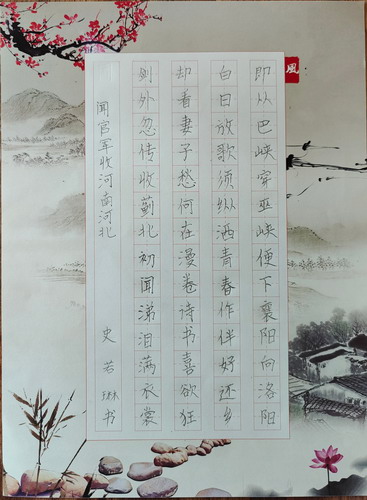 闻官军收河南河北 史若琳书
剑外忽传收蓟北初闻涕泪满衣裳
却看妻子愁何在漫卷诗书喜欲狂
白日放歌须纵酒青春作伴好还乡
即从巴峡穿巫峡便下襄阳向洛阳
風